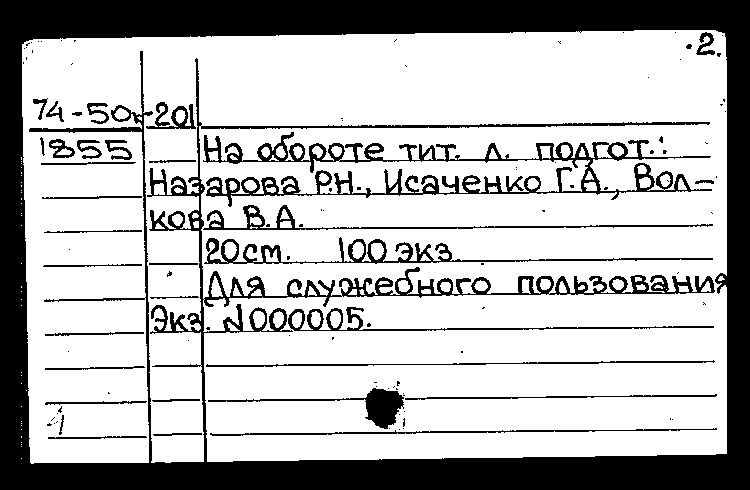 ·2.
74-50к-201
1855
На обороте тит. л. подгот.:
Назарова Р.Н., Исаченко Г.А., Вол-
кова В.А.
20 ст. 100 экз.
Для служебного пользования
Экз. N000005.